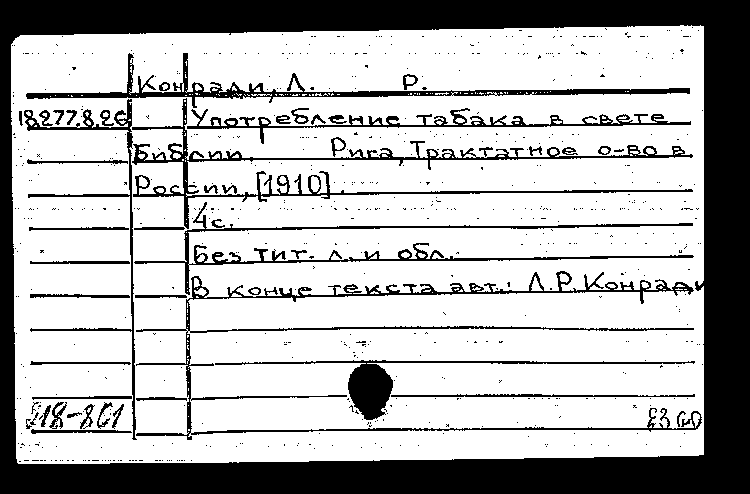 Конради, Л. Р.
18.277.8.26 Употребление табака в свете
Библии. Рига, Трактатное о-во в
России, [1910].
4с.
Без тит. л. и обл.
В конце текста авт.: Л.Р. Конради